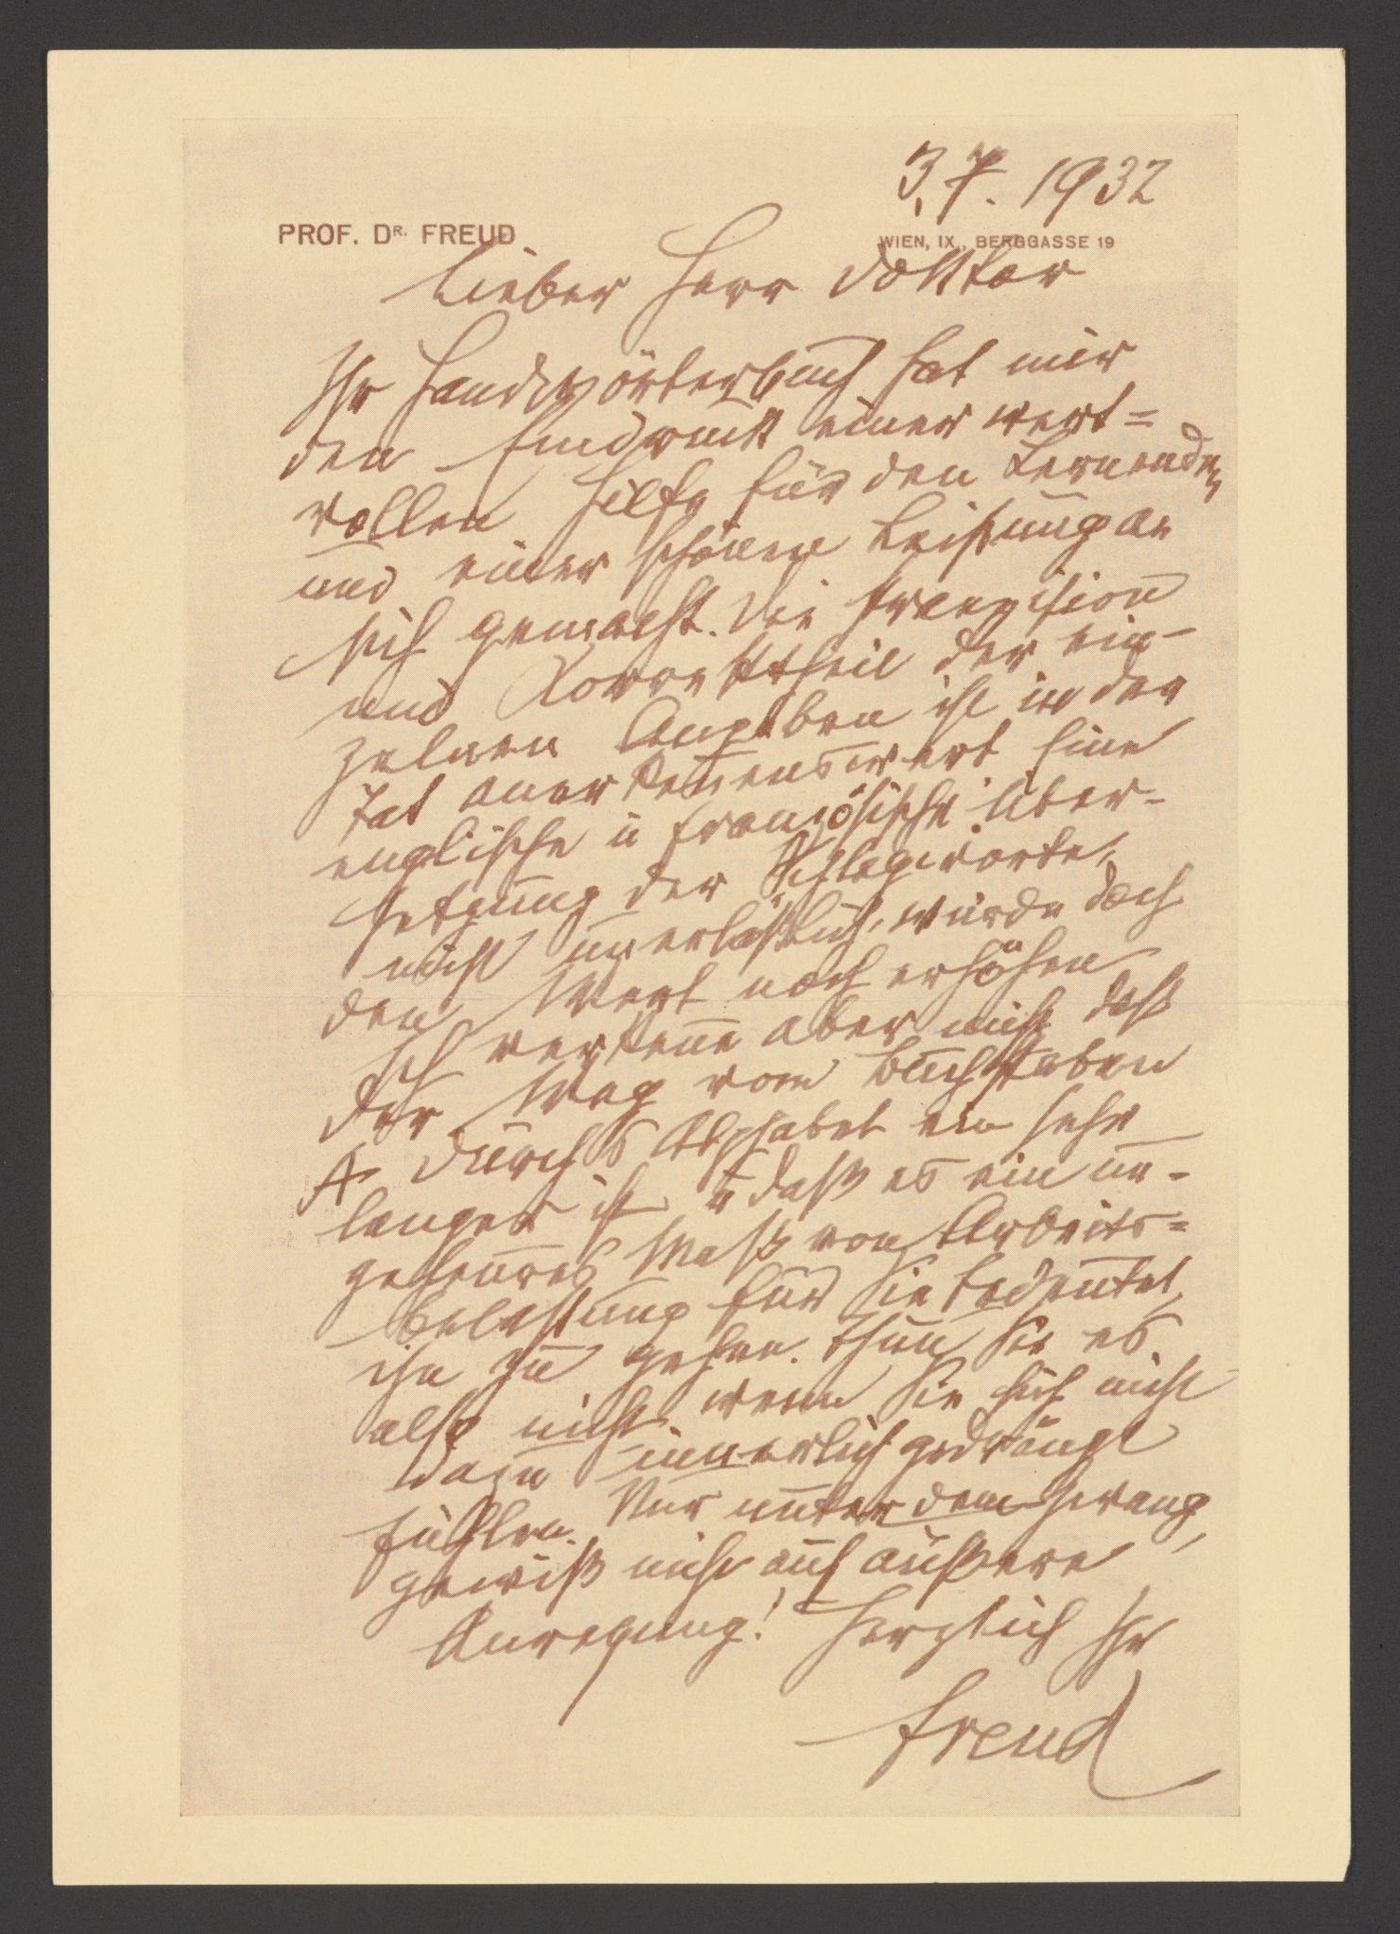 3.7.1932
PROF. DR. FREUD
WIEN, IX., BERGGASSE 19
Lieber Herr Doktor
Ihr Handwörterbuch hat mir
den Eindruck einer wert=
vollen Hilfe für den Lernenden
und einer schönen Leistung an
sich gemacht. Die Praezision
und Korrektheit der ein-
zelnen Angaben ist in der
Tat anerkennenswert. Eine
englische u französische Über-
setzung der Schlagworte,
nicht unerläßlich, würde doch
den Wert noch erhöhen
Ich verkenne aber nicht daß
der Weg vom Buchstaben
A durchs Alphabet ein sehr
langer ist, u daß es ein un-
geheures Maß von Arbeits=
belastung für Sie bedeutet,
ihn zu gehen. Thun Sie es
also nicht, wenn Sie sich nicht
dazu innerlich gedrängt
fühlen. Nur unter dem Zwang,
gewiß nicht auf äußere
Anregung! Herzlich Ihr
Freud